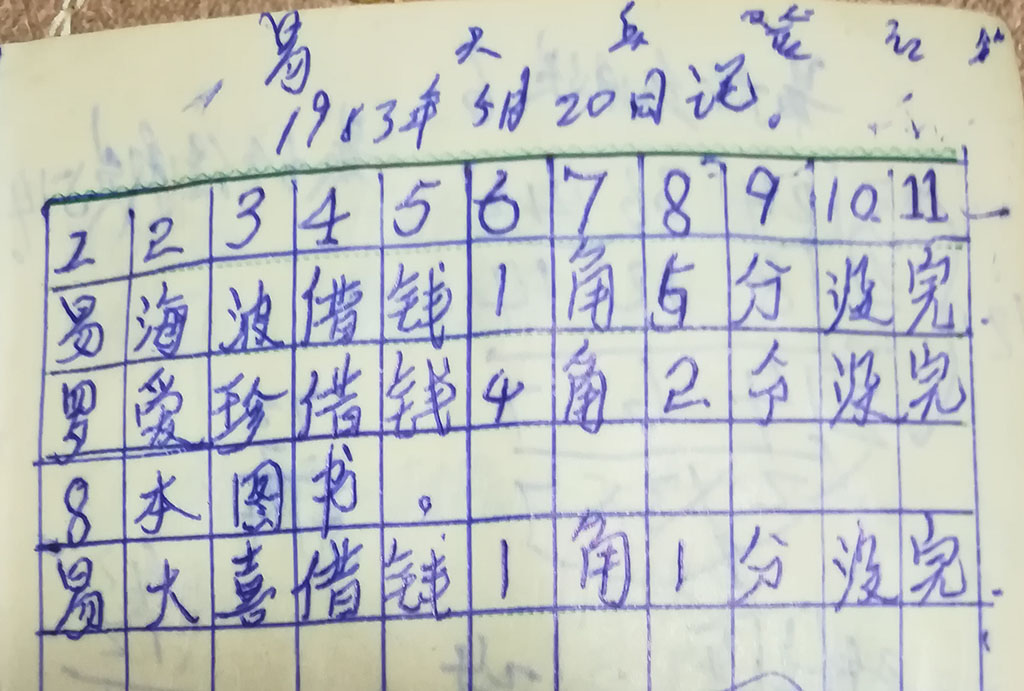 易 大
1983年5月20日记.
1 2 3 4 5 6 7 8 9 10 11
易海波借钱1角5分没完
罗爱珍借钱4角2分没完
8本图书。
易大喜借钱1角1分没完